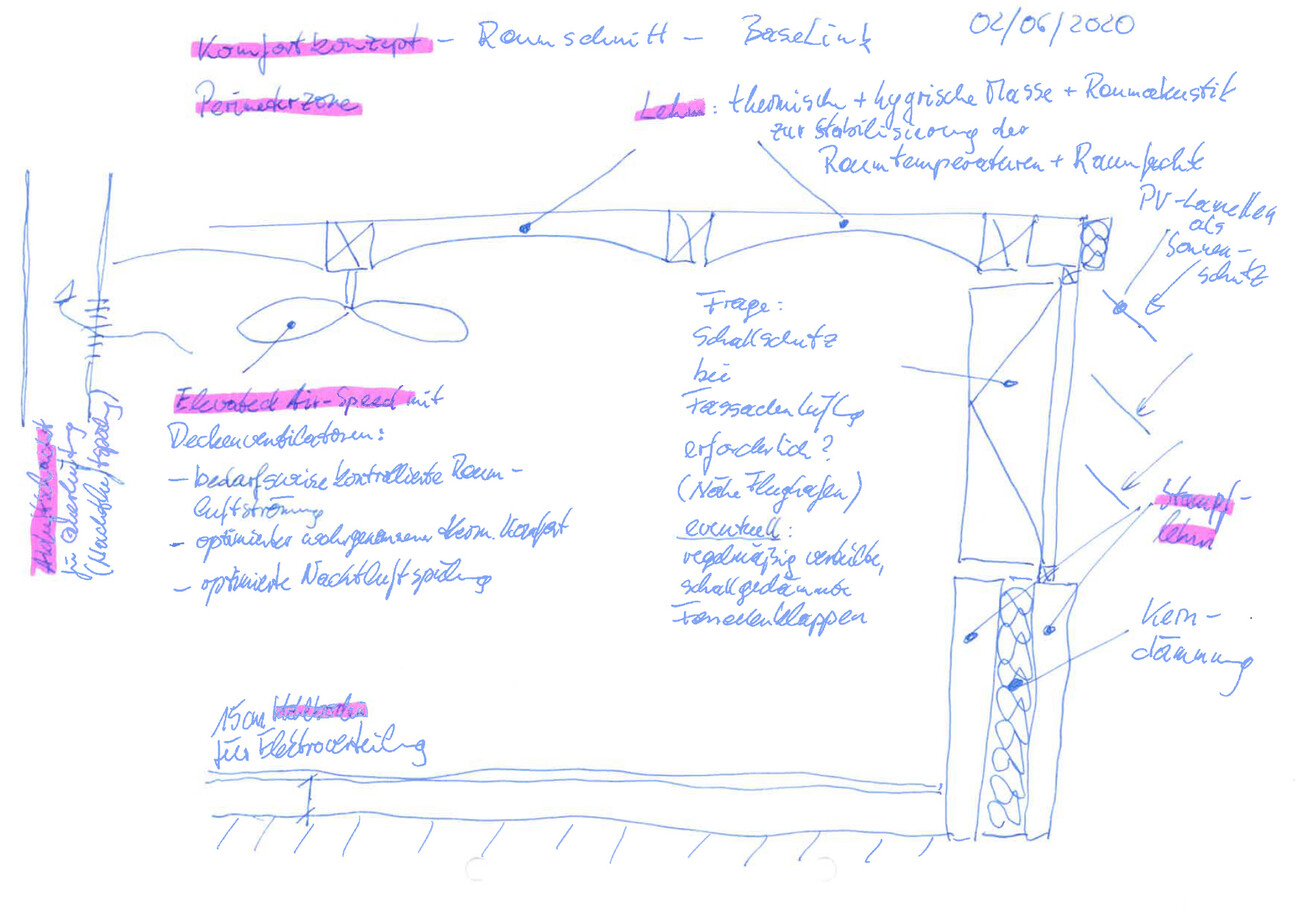 Komfortkonzept – Raumschnitt – BaseLink
02/06/2020
Perimeterzone
Lehm: thermische + hygrische Masse + Raumakustik
zur Stabilisierung der
Raumtemperaturen + Raumfeuchte
PV-Lamellen
als
Sonnen-
schutz
Frage:
Schallschutz
bei
Fassadenlüftg
erforderlich?
(Nähe Flughafen)
eventuell:
regelmäßig verteilte,
schallgedämmte
Fassadenklappen
Elevated Air-Speed mit
Deckenventilatoren:
– bedarfsweise kontrollierte Raum-
luftströmung
– optimierter wahrgenommener therm. Komfort
– optimierte Nachtluftspülung
Abluftschacht
für Querlüftung
(Nachtluftspülg)
Stampf-
lehm
Kern-
dämmung
15cm Hohlboden
für Elektroverteilung